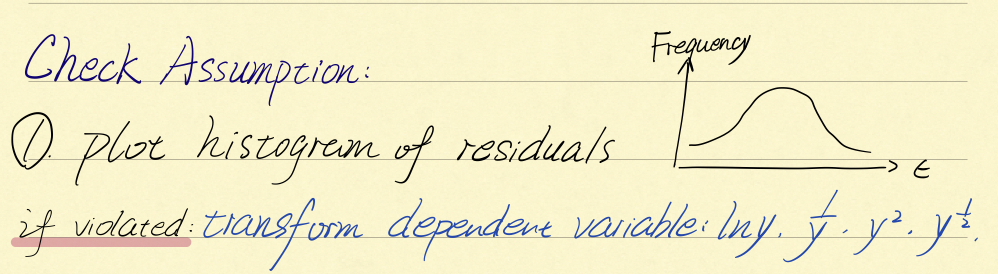 Check Assumption:
Frequency
①. plot histogram of residuals
ε
if violated: transform dependent variable: ln y. 1/y. y². y^½.